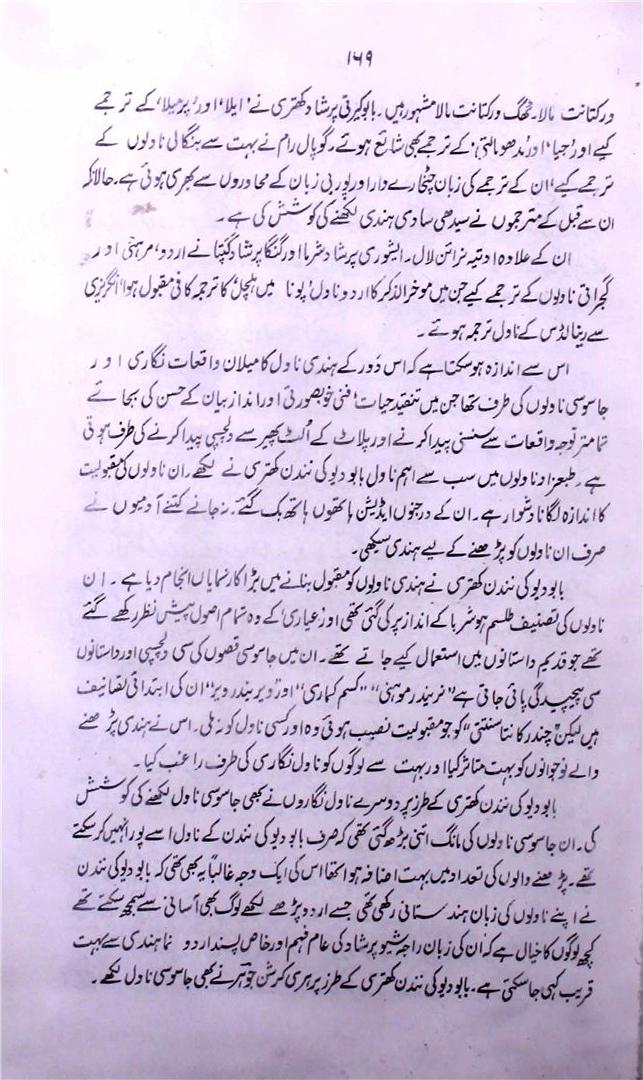 ۱۶۹
ورکتانت مالا۔ ٹھگ ورکتانت مالا مشہور ہیں۔ بابو کیرتی پرشاد کھتری نے 'ایلا' اور 'پرمیلا' کے ترجمے
کیے اور 'جیا' اور 'مدھومالتی' کے ترجمے بھی شائع ہوئے۔ گوپال رام نے بہت سے بنگالی ناولوں کے
ترجمے کیے' ان کے ترجمے کی زبان چٹخارے دار اور پوربی زبان کے محاوروں سے بھری ہوئی ہے۔ حالانکہ
ان سے قبل کے مترجموں نے سیدھی سادی ہندی لکھنے کی کوشش کی ہے۔
ان کے علاوہ ادتیہ نرائن لال۔ ایشوری پرشاد شرما اور گنگا پرشاد گپتا نے اردو' مرہٹی اور
گجراتی ناولوں کے ترجمے کیے جن میں موخر الذکر کا اردو ناول 'پونا میں ہلچل' کا ترجمہ کافی مقبول ہوا' انگریزی
سے رینالڈس کے ناول ترجمہ ہوئے۔
اس سے اندازہ ہو سکتا ہے کہ اس دَور کے ہندی ناول کا میلان واقعات نگاری اور
جاسوسی ناولوں کی طرف تھا جن میں تنقید حیات' فنی خوبصورتی اور انداز بیان کے حسن کی بجائے
تمامتر توجہ واقعات سے سنسنی پیدا کرنے اور پلاٹ کے اُلٹ پھیر سے دلچسپی پیدا کرنے کی طرف ہوتی
ہے۔ طبعزاد ناولوں میں سب سے اہم ناول بابو دیوکی نندن کھتری نے لکھے۔ ان ناولوں کی مقبولیت
کا اندازہ لگانا دشوار ہے۔ ان کے درجنوں ایڈیشن ہاتھوں ہاتھ بک گئے۔ نہ جانے کتنے آدمیوں نے
صرف ان ناولوں کو پڑھنے کے لیے ہندی سیکھی۔
بابو دیوکی نندن کھتری نے ہندی ناولوں کو مقبول بنانے میں بڑا کار نمایاں انجام دیا ہے۔ ان
ناولوں کی تصنیف طلسم ہوشربا کے انداز پر کی گئی تھی اور 'عیاری' کے وہ تمام اصول پیش نظر رکھے گئے
تھے جو قدیم داستانوں میں استعمال کیے جاتے تھے۔ ان میں جاسوسی قصوں کی سی دلچسپی اور داستانوں
سی پیچیدگی پائی جاتی ہے "نریندر موہنی" "کسم کماری" اور "ویر بیندر ویر" ان کی ابتدائی تصانیف
ہیں لیکن "چندر کانتا سنتتی" کو جو مقبولیت نصیب ہوئی وہ اور کسی ناول کو نہ ملی۔ اس نے ہندی پڑھنے
والے نوجوانوں کو بہت متاثر کیا اور بہت سے لوگوں کو ناول نگاری کی طرف راغب کیا۔
بابو دیوکی نندن کھتری کے طرز پر دوسرے ناول نگاروں نے بھی جاسوسی ناول لکھنے کی کوشش
کی۔ ان جاسوسی ناولوں کی مانگ اتنی بڑھ گئی تھی کہ صرف بابو دیوکی نندن کے ناول اسے پورا نہیں کر سکتے
تھے۔ پڑھنے والوں کی تعداد میں بہت اضافہ ہوا تھا اس کی ایک وجہ غالباً یہ بھی تھی کہ بابو دیوکی نندن
نے اپنے ناولوں کی زبان ہندستانی رکھی تھی جسے اردو پڑھے لکھے لوگ بھی آسانی سے سمجھ سکتے تھے
کچھ لوگوں کا خیال ہے کہ اُن کی زبان راجہ شیو پرشاد کی عام فہم اور خاص پسند اردو نما ہندی سے بہت
قریب کہی جا سکتی ہے۔ بابو دیوکی نندن کھتری کے طرز پر ہری کرشن جوہر نے بھی جاسوسی ناول لکھے۔